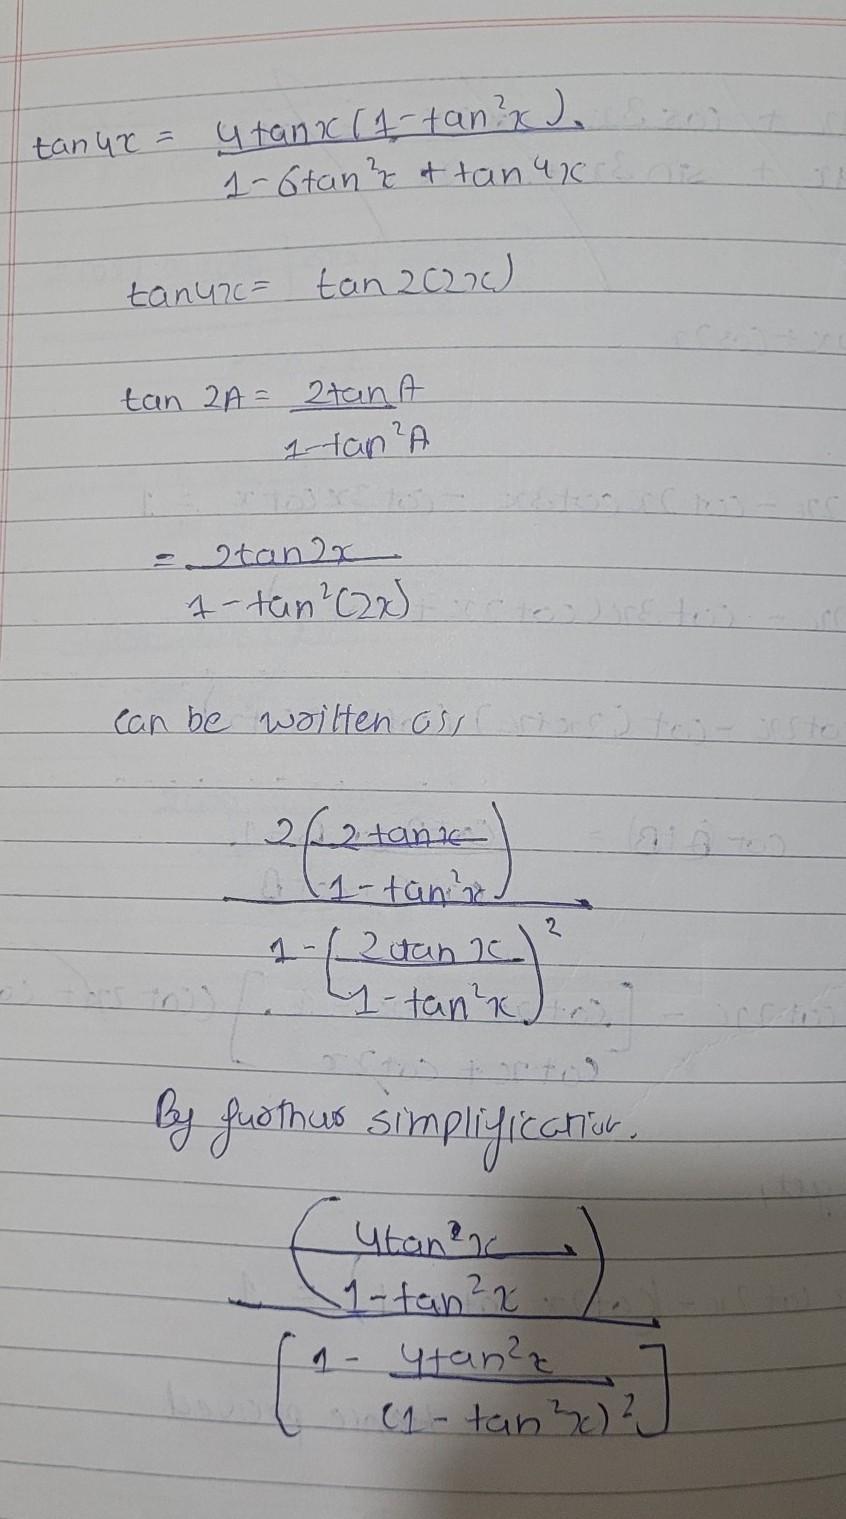 tan4x = 4tanx(1-tan²x).
1-6tan²x + tan4x
tan4x = tan2(2x)
tan 2A = 2tanA
1-tan²A
= 2tan2x
1-tan²(2x)
can be written as,
2(2tanx
1-tan²x)
1-(2tanx
1-tan²x)²
By further simplification.
(4tan²x
1-tan²x)
[1- 4tan²x
(1-tan²x)²]